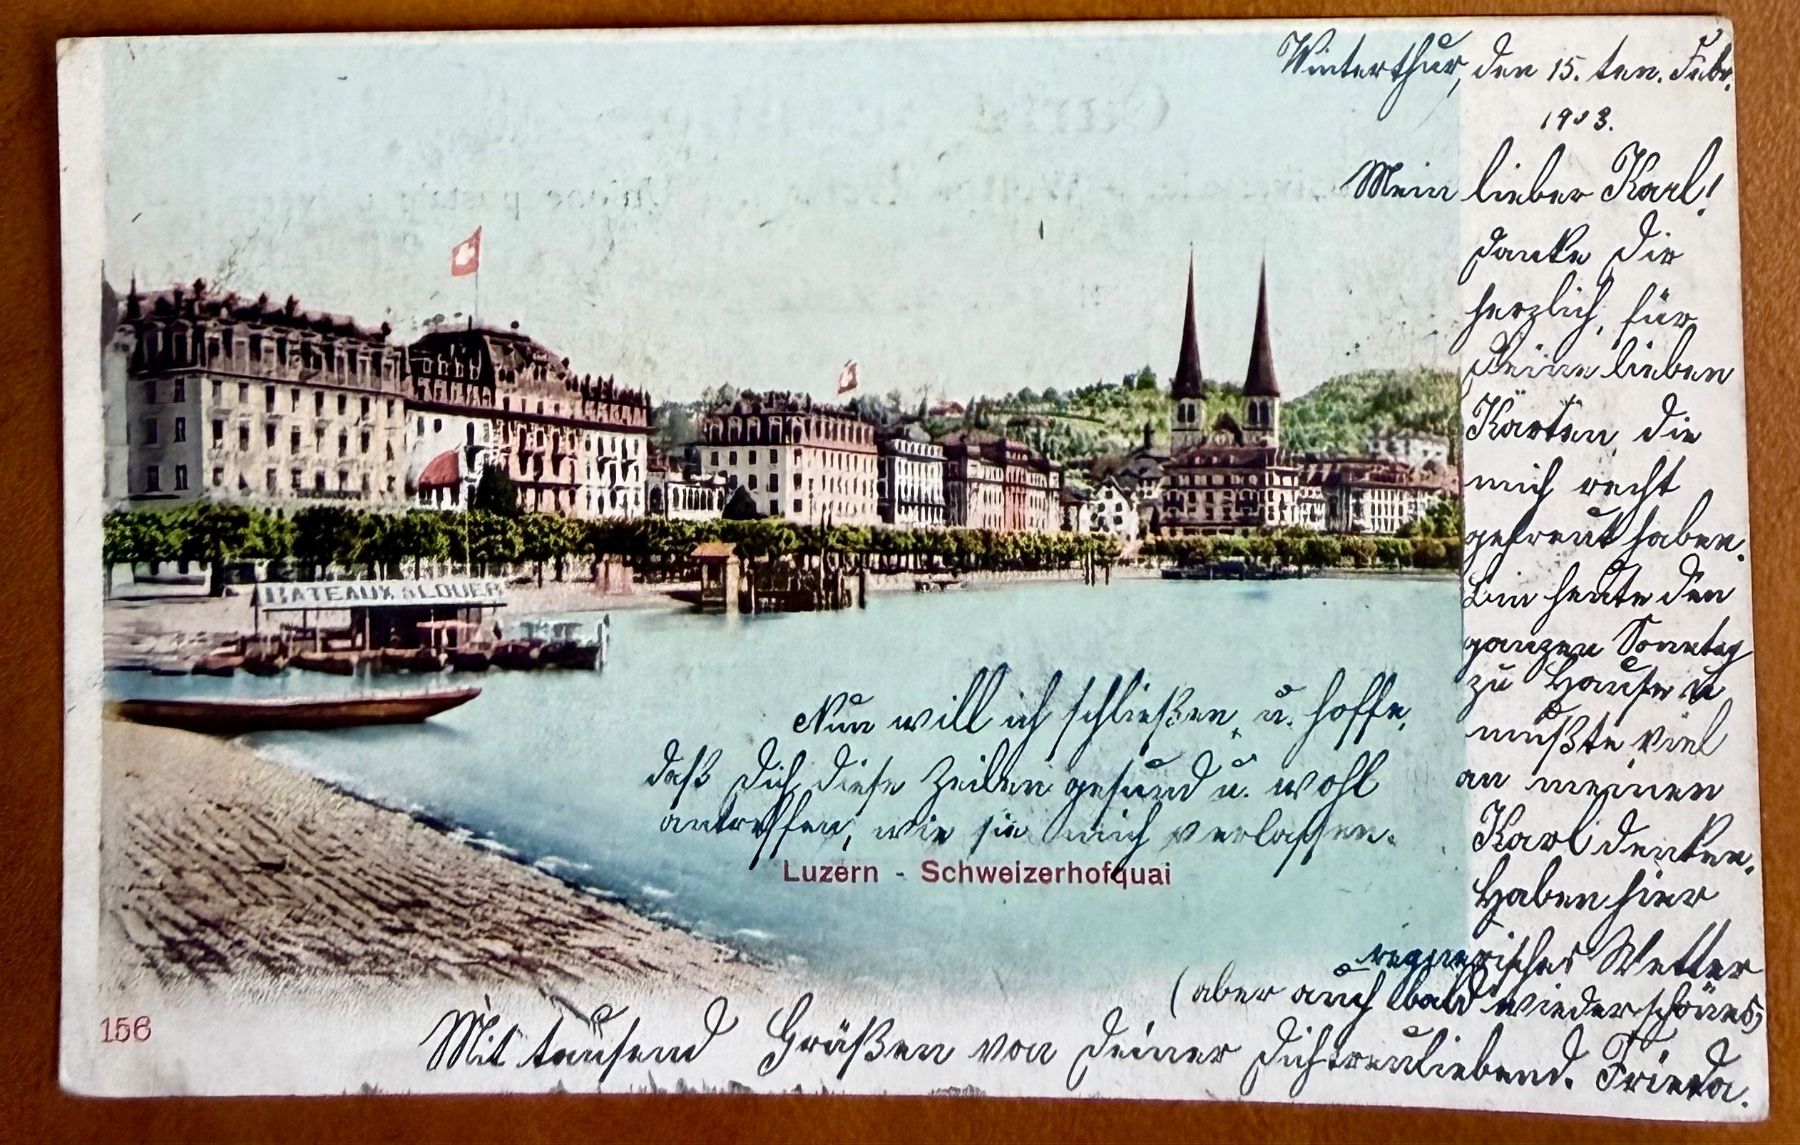 Winterthur, den 15. ten. Febr.
1903.
Mein lieber Karl!
Danke Dir
herzlich, für
Deine lieben
Karten, die
mich recht
gefreut haben.
Bin heute den
ganzen Sonntag
zu Hause u
mußte viel
an meinen
Karl denken.
Haben hier
regnerisches Wetter
(aber auch bald wieder schönes)
Nun will ich schließen, u. hoffe,
daß Dich diese Zeilen gesund u. wohl
antreffen, wie sie mich verlassen.
Mit tausend Grüßen von Deiner Dichtreuliebend. Frieda.
BATEAUX à LOUER
Luzern - Schweizerhofquai
156